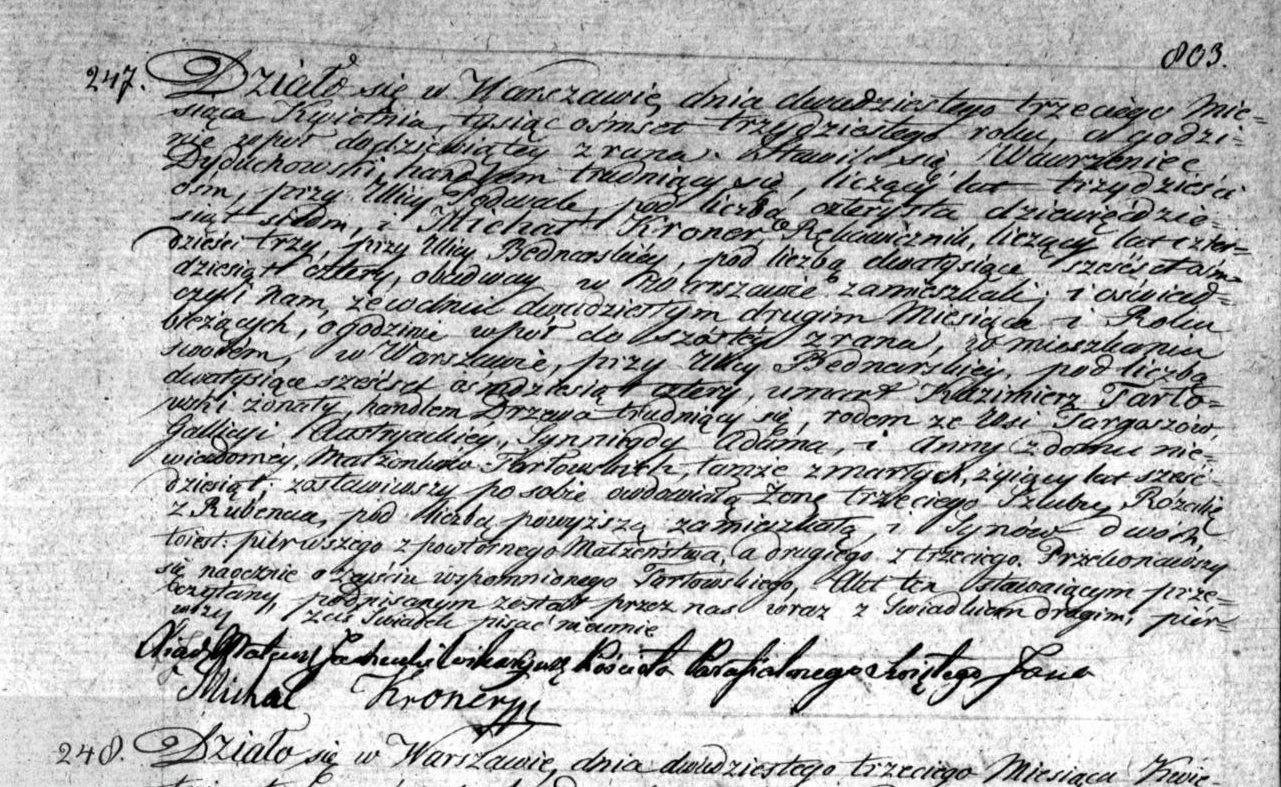 803.
247. Działo się w Warszawie, dnia dwudziestego trzeciego Mie=
siąca Kwietnia, tysiąc ośmset trzydziestego roku, o godzi=
nie wpół do dziewiątey z rana. Stawił się Wawrzeniec
Dyduchowski, handlem trudniący się, liczący lat trzydzieści
ośm, przy Ulicy Podwale pod liczbą czterysta dziewięćdzie=
siąt siedm, i Michał Kroner Rękawicznik, liczący lat czter=
dzieści trzy, przy Ulicy Bednarskiéy, pod liczbą dwatysiące sześćset ośm=
dziesiąt cztery, obudwaj w Warszawie zamieszkali; i oświad=
czyli nam, że w dniu dwudziestym drugim Miesiąca i Roku
bieżących, o godzinie wpół do szóstéy z rana, w mieszkaniu
swoiém, w Warszawie, przy Ulicy Bednarskiéy, pod liczbą
dwatysiące sześćset ośmdziesiąt cztery, umarł Kazimierz Tarło=
wski żonaty, handlem Drzewa trudniący się, rodem ze Wsi Targoszów
Gallicyi Austryackiey, Syn niegdy Adama, i Anny z domu nie=
wiadomey, Małżonków Tarłowskich, tamże zmarłych, żyiący lat sześć=
dziesiąt; zostawiwszy po sobie owdowiałą Żonę trzeciego Szlubu Rozalią
z , pod liczbą powyższą zamieszkałą, i Synów dwóch
toiest: pierwszego z powtórnego Małżeństwa, a drugiego z trzeciego. Przekonawszy
się naocznie o Zeyściu wspomnionego Tarłowskiego, Akt ten Stawaiącym prze=
czytany, podpisanym został przez nas wraz z Swiadkiem drugim, piér=
wszy zaś Swiadek pisać nieumie
Xiądz Mateusz Wikaryusz Kościoła Parafialnego Świętego Jana
Michał Kroner
248. Działo się w Warszawie, dnia dwudziestego trzeciego Miesiąca Kwie=